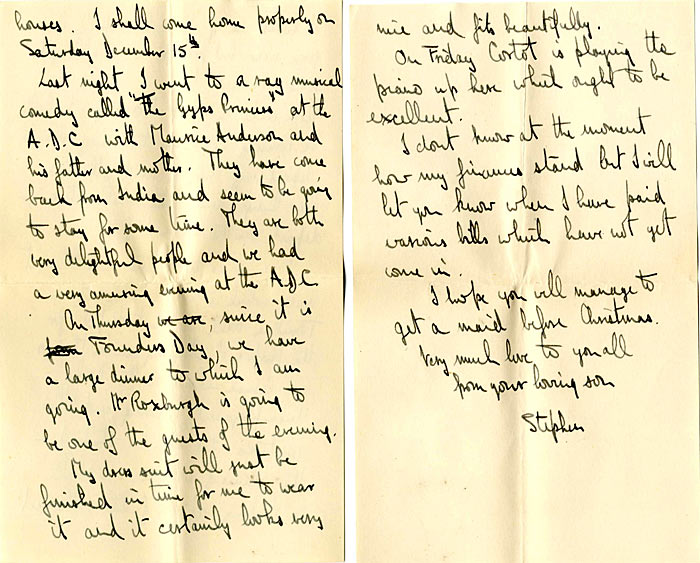 houses. I shall come home properly on
Saturday December 15th.
Last night I went to a rag musical
comedy called "The Gyps Princess" at the
A.D.C with Maurice Anderson and
his father and mother. They have come
back from India and seem to be going
to stay for some time. They are both
very delightful people and we had
a very amusing evening at the A.D.C.
On Thursday we are, since it is
Founders Day, we have
a large dinner to which I am
going. Mr Roxburgh is going to
be one of the guests of the evening.
My dress suit will just be
finished in time for me to wear
it and it certainly looks very
nice and fits beautifully.
On Friday Cortot is playing the
piano up here which ought to be
excellent.
I dont know at the moment
how my finances stand but I will
let you know when I have paid
various bills which have not yet
come in.
I hope you will manage to
get a maid before Christmas.
Very much love to you all
from your loving son
Stephen